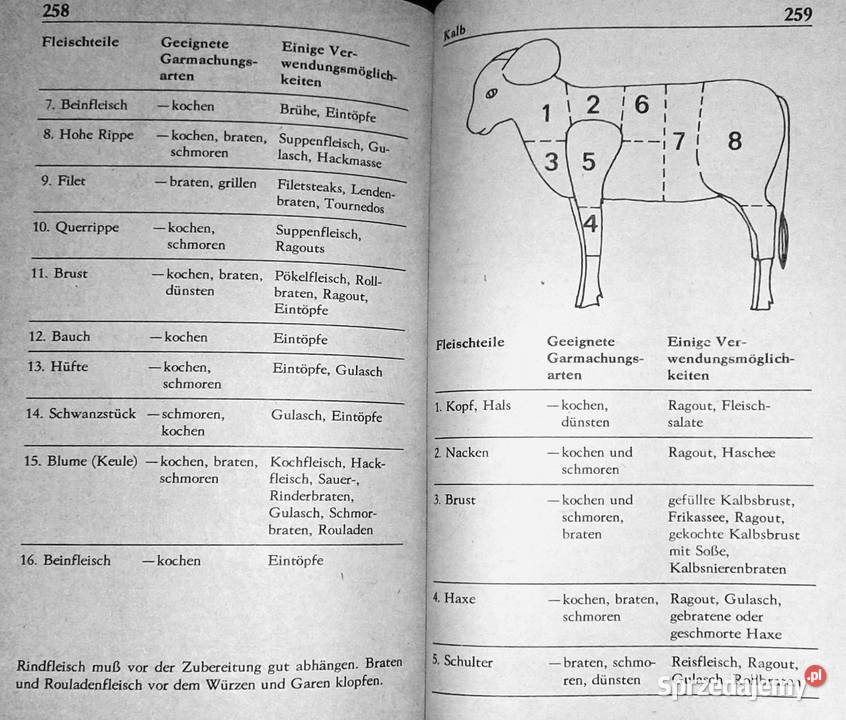 258
Fleischteile Geeignete Einige Ver-
Garmachungs- wendungsmöglich-
arten keiten
7. Beinfleisch —kochen Brühe, Eintöpfe
8. Hohe Rippe —kochen, braten, Suppenfleisch, Gu-
schmoren lasch, Hackmasse
9. Filet —braten, grillen Filetsteaks, Lenden-
braten, Tournedos
10. Querrippe —kochen, Suppenfleisch,
schmoren Ragouts
11. Brust —kochen, braten, Pökelfleisch, Roll-
dünsten braten, Ragout,
Eintöpfe
12. Bauch —kochen Eintöpfe
13. Hüfte —kochen, Eintöpfe, Gulasch
schmoren
14. Schwanzstück —schmoren, Gulasch, Eintöpfe
kochen
15. Blume (Keule) —kochen, braten, Kochfleisch, Hack-
schmoren fleisch, Sauer-,
Rinderbraten,
Gulasch, Schmor-
braten, Rouladen
16. Beinfleisch —kochen Eintöpfe
Rindfleisch muß vor der Zubereitung gut abhängen. Braten
und Rouladenfleisch vor dem Würzen und Garen klopfen.
259
Kalb
1 2 6
3 5 7 8
4
Fleischteile Geeignete Einige Ver-
Garmachungs- wendungsmöglich-
arten keiten
1. Kopf, Hals —kochen, Ragout, Fleisch-
dünsten salate
2. Nacken —kochen und Ragout, Haschee
schmoren
3. Brust —kochen und gefüllte Kalbsbrust,
schmoren, Frikassee, Ragout,
braten gekochte Kalbsbrust
mit Soße,
Kalbsnierenbraten
4. Haxe —kochen, braten, Ragout, Gulasch,
schmoren gebratene oder
geschmorte Haxe
5. Schulter —braten, schmo- Reisfleisch, Ragout,
ren, dünsten Gulasch, Rollbraten
Sprzedajemy.pl